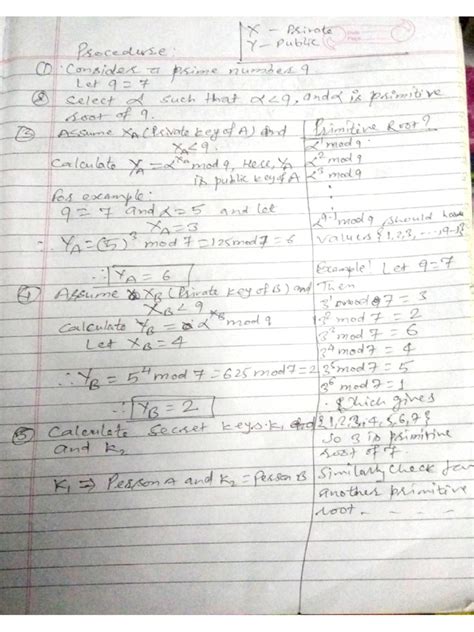 X - Private
Y - Public
Procedure:
① Consider a prime number q
Let q = 7
② Select α such that α<q, and α is primitive
root of q.
③ Assume XA (Private key of A) and
XA<q.
Calculate YA = α^XA mod q, Here, YA
is public key of A
For example:
q = 7 and α = 5 and let
XA = 3
∴ YA = (5)³ mod 7 = 125 mod 7 = 6
∴ YA = 6
④ Assume XB (Private key of B) and
XB<q
Calculate YB = α^XB mod q
Let XB = 4
∴ YB = 5⁴ mod 7 = 625 mod 7 = 2
∴ YB = 2
⑤ Calculate secret keys: K1
and K2
K1 ⇒ Person A and K2 = Person B
Primitive Root ?
α¹ mod q
α² mod q
α³ mod q
.
.
α^q-1 mod q should have
values {1,2,3,....,q-1}
Example! Let q=7
Then
3¹ mod 7 = 3
3² mod 7 = 2
3³ mod 7 = 6
3⁴ mod 7 = 4
3⁵ mod 7 = 5
3⁶ mod 7 = 1
which gives
{1,2,3,4,5,6,7}
so 3 is primitive
root of 7.
Similarly check for
another primitive
root - - - -